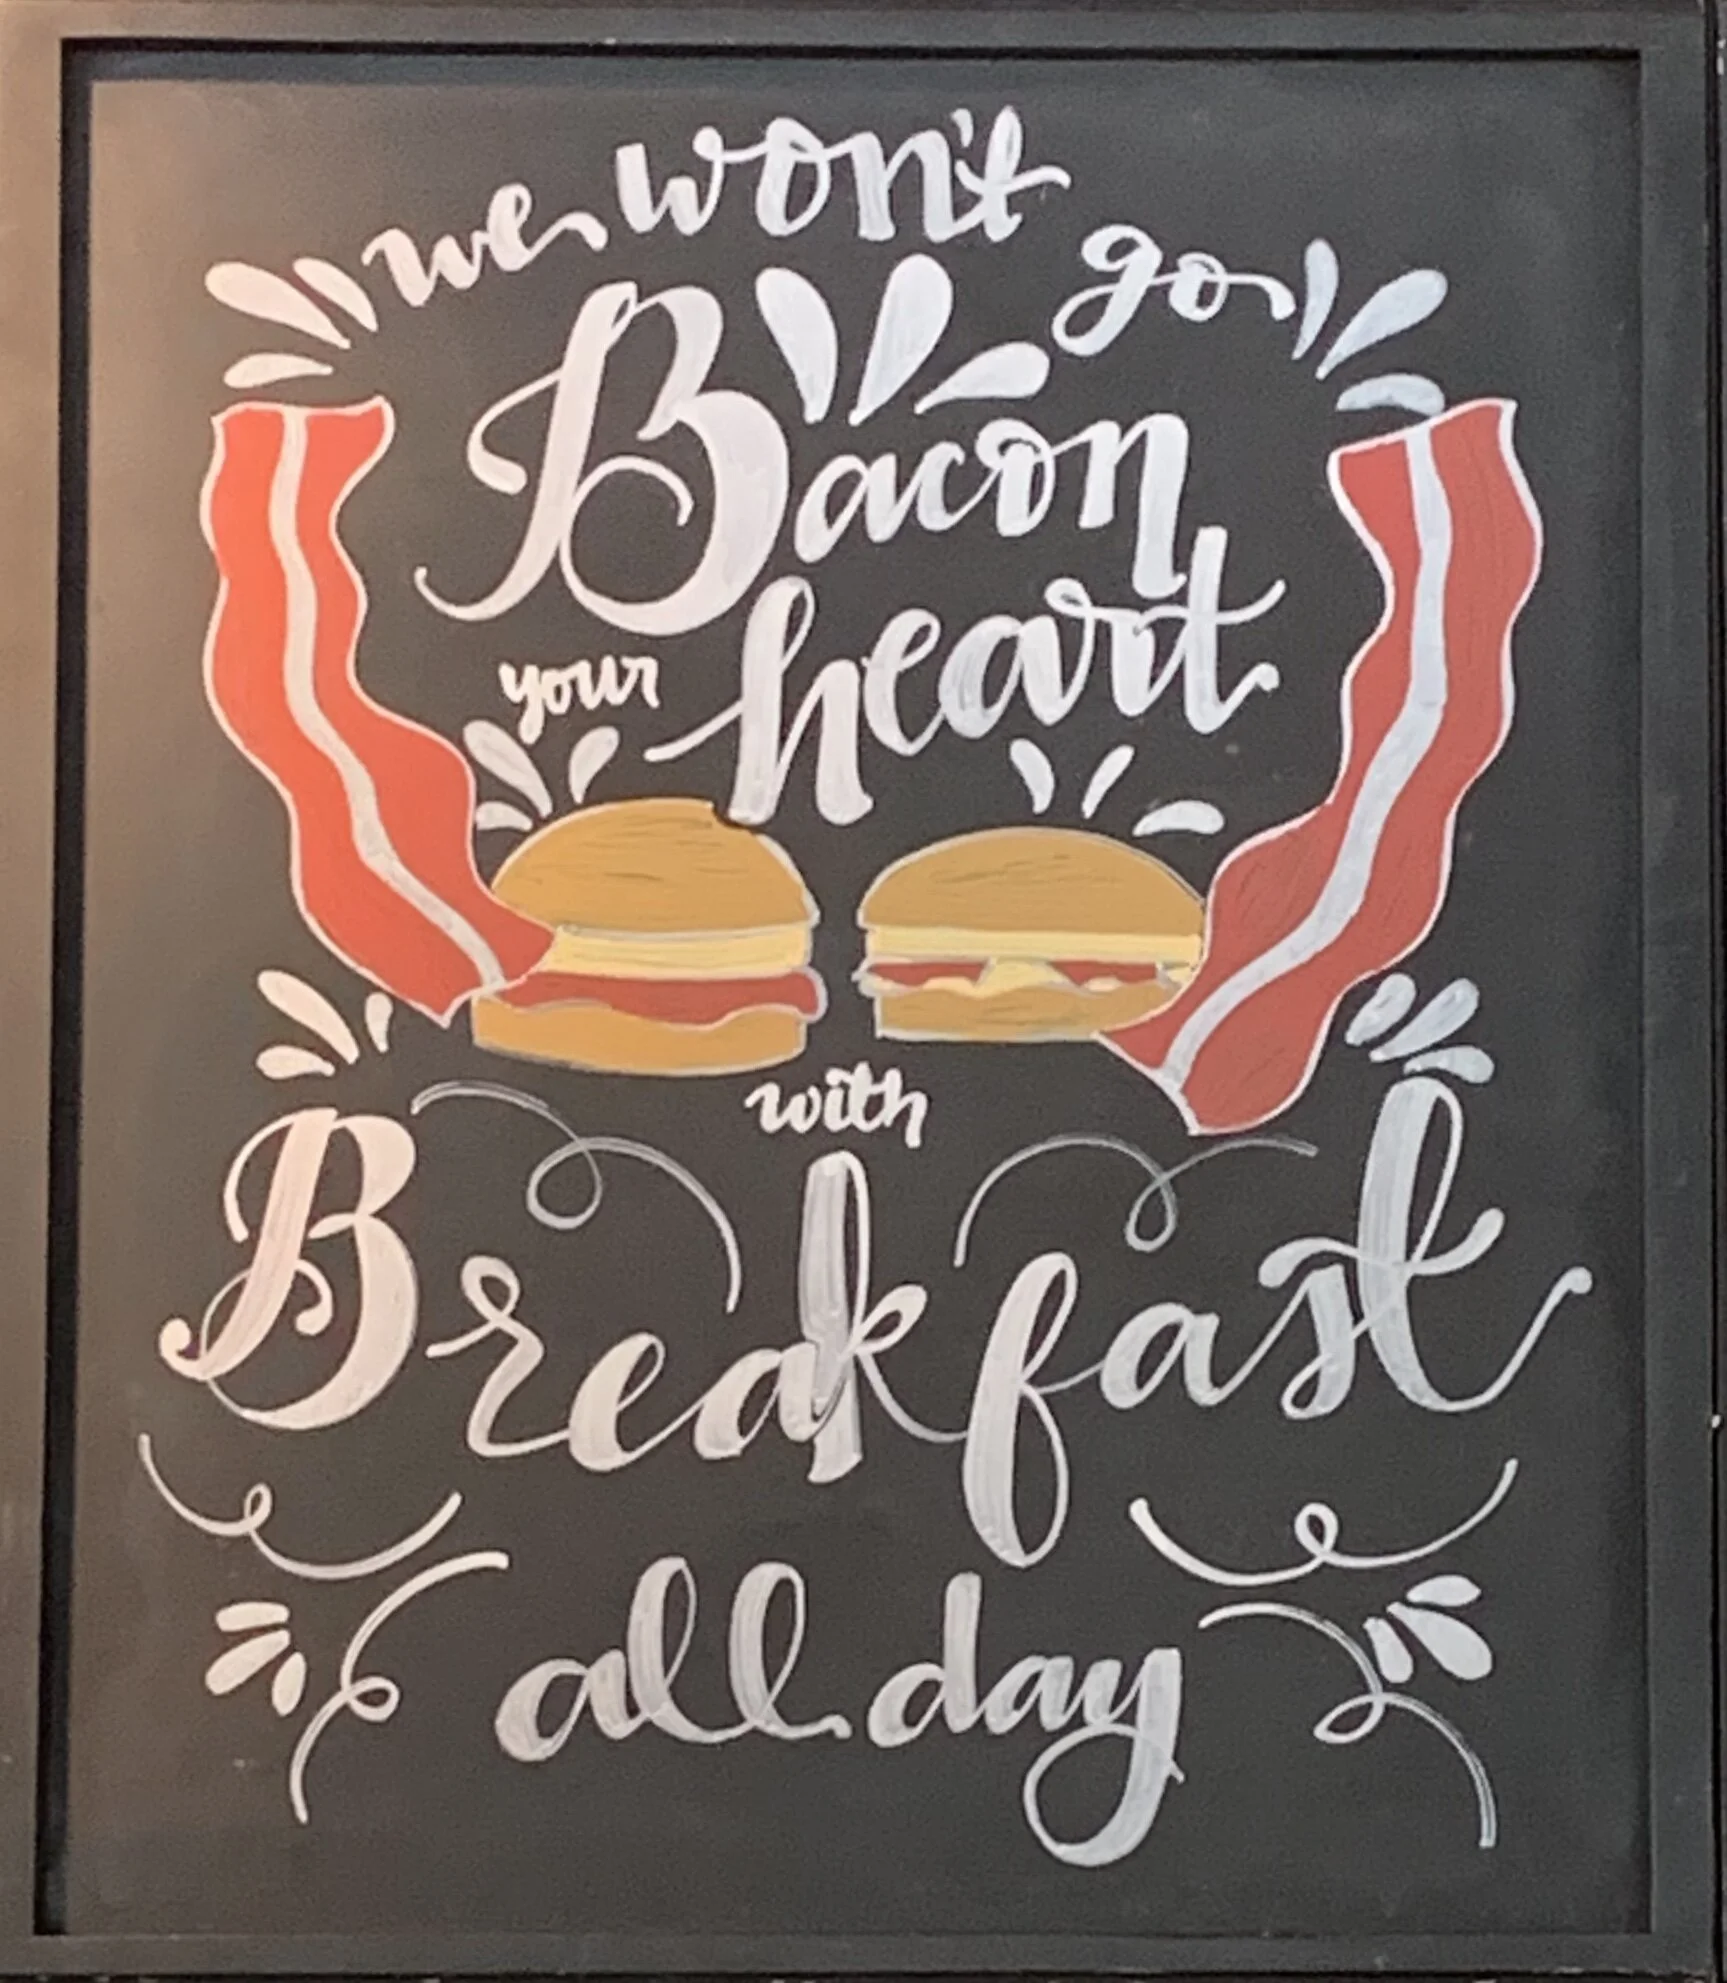 we won't go
Bacon
your heart
with
Breakfast
all day